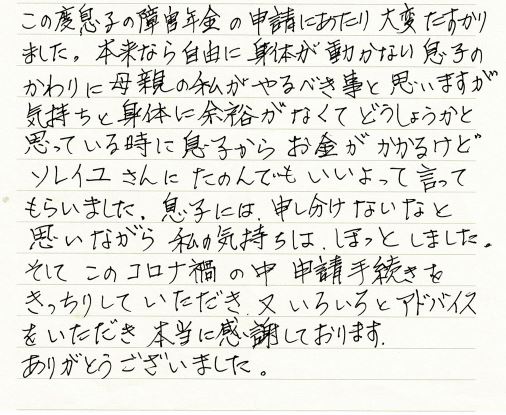 この度息子の障害年金の申請にあたり 大変たすかり
ました。本来なら自由に身体が動かない息子の
かわりに母親の私がやるべき事と思いますが
気持ちと身体に余裕がなくてどうしょうかと
思っている時に息子からお金がかかるけど
ソレイユさんにたのんでもいいよって言って
もらいました。息子には、申し分けないなと
思いながら私の気持ちは、ほっとしました。
そしてこのコロナ禍の中 申請手続きを
きっちりしていただき、又いろいろとアドバイス
をいただき 本当に感謝しております。
ありがとうございました。